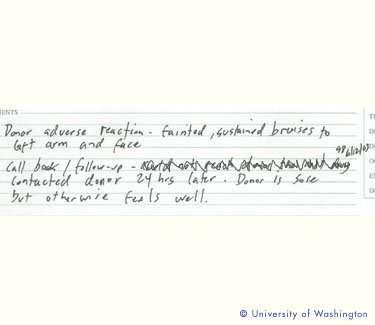 ENTS
Donor adverse reaction - fainted, sustained bruises to
left arm and face
Call back / follow-up -
contacted donor 24 hrs later. Donor is sore
but otherwise feels well.
© University of Washington